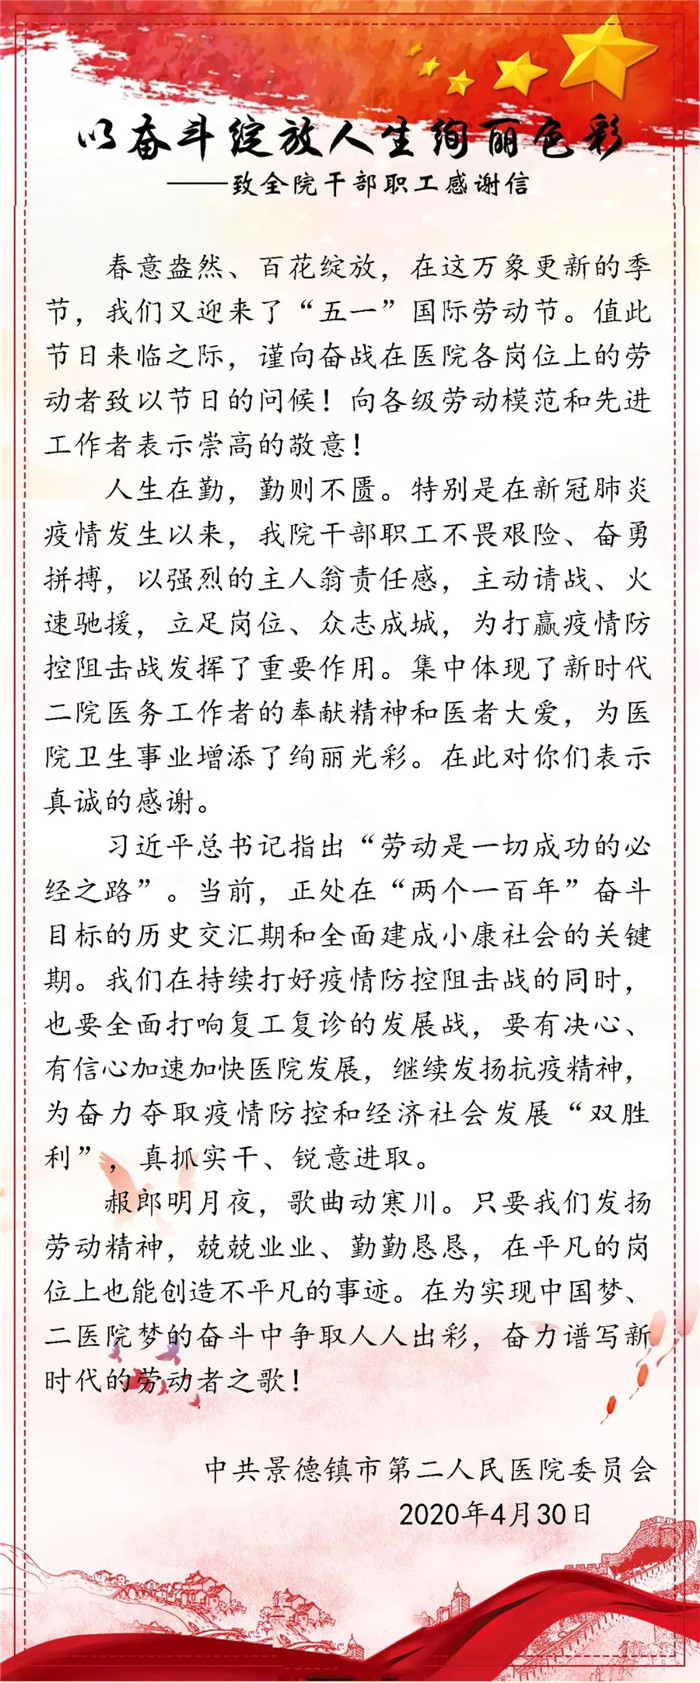 以奋斗绽放人生绚丽色彩
——致全院干部职工感谢信
春意盎然、百花绽放，在这万象更新的季
节，我们又迎来了“五一”国际劳动节。值此
节日来临之际，谨向奋战在医院各岗位上的劳
动者致以节日的问候！向各级劳动模范和先进
工作者表示崇高的敬意！
人生在勤，勤则不匮。特别是在新冠肺炎
疫情发生以来，我院干部职工不畏艰险、奋勇
拼搏，以强烈的主人翁责任感，主动请战、火
速驰援，立足岗位、众志成城，为打赢疫情防
控阻击战发挥了重要作用。集中体现了新时代
二院医务工作者的奉献精神和医者大爱，为医
院卫生事业增添了绚丽光彩。在此对你们表示
真诚的感谢。
习近平总书记指出“劳动是一切成功的必
经之路”。当前，正处在“两个一百年”奋斗
目标的历史交汇期和全面建成小康社会的关键
期。我们在持续打好疫情防控阻击战的同时，
也要全面打响复工复诊的发展战，要有决心、
有信心加速加快医院发展，继续发扬抗疫精神，
为奋力夺取疫情防控和经济社会发展“双胜
利”，真抓实干、锐意进取。
赧郎明月夜，歌曲动寒川。只要我们发扬
劳动精神，兢兢业业、勤勤恳恳，在平凡的岗
位上也能创造不平凡的事迹。在为实现中国梦、
二医院梦的奋斗中争取人人出彩，奋力谱写新
时代的劳动者之歌！
中共景德镇市第二人民医院委员会
2020年4月30日